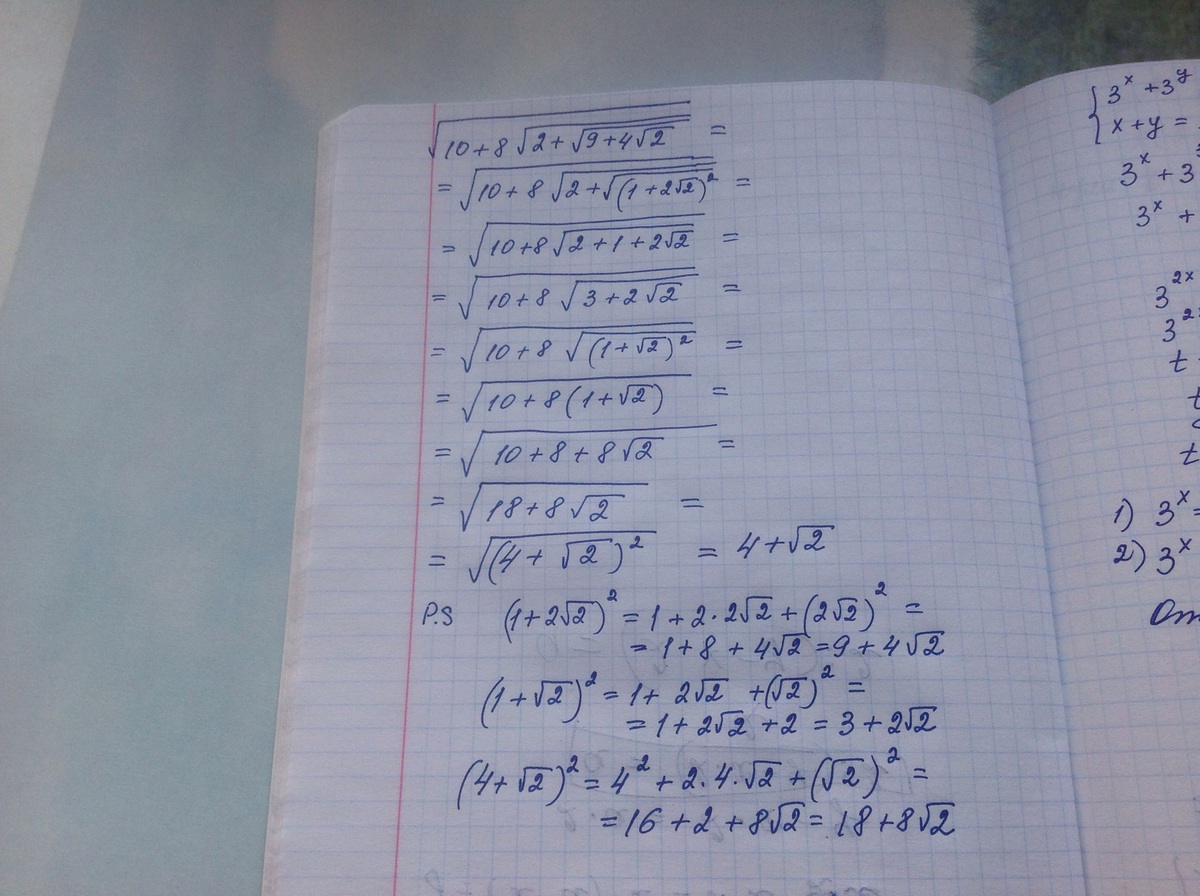 √(10+8√(2+√(9+4√2))) =
= √(10+8√(2+√((1+2√2)²))) =
= √(10+8√(2+1+2√2)) =
= √(10+8√(3+2√2)) =
= √(10+8√((1+√2)²)) =
= √(10+8(1+√2)) =
= √(10+8+8√2) =
= √(18+8√2) =
= √((4+√2)²) = 4+√2
P.S (1+2√2)² = 1+2·2√2+(2√2)² =
= 1+8+4√2 = 9+4√2
(1+√2)² = 1+2√2+(√2)² =
= 1+2√2+2 = 3+2√2
(4+√2)² = 4²+2.4.√2+(√2)² =
= 16+2+8√2 = 18+8√2
{3ˣ+3ʸ
x+y =
3ˣ+3
3ˣ +
3²ˣ
3²
t
t
t
1) 3ˣ=
2) 3ˣ